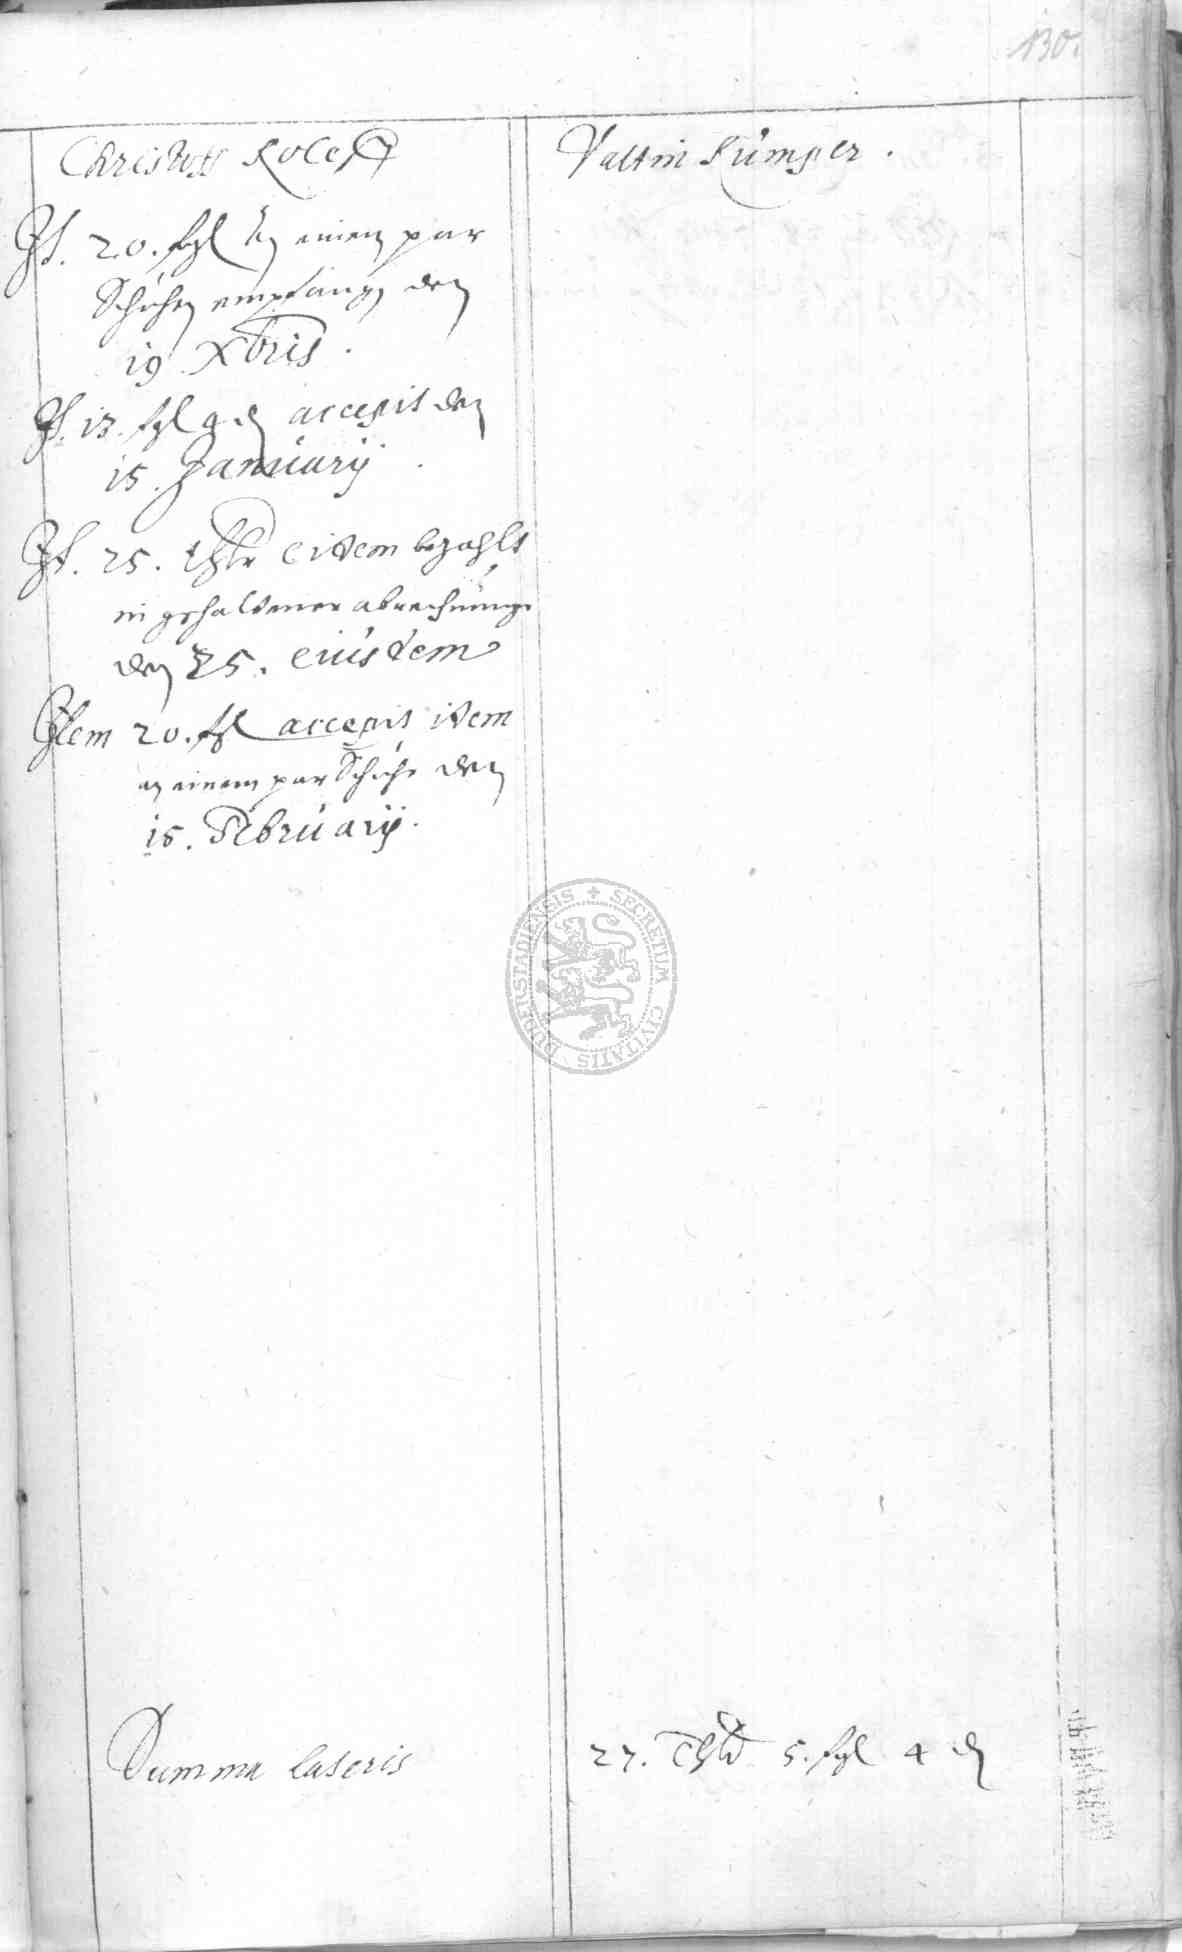 130.
Christoff Rolef
Valtin Kümper.
It. 20. ßgl an einen par
Schuhen empfangen den
19 Xbris.
It. 13. ßgl 4 d accepit den
15. Januarij.
It. 25. thlr eidem bezahlt
in gehaltener abrechnunge
den 25. eiusdem
Item 20. ßgl accepit idem
an einem par Schuhe den
15. Februarij.
SECRETUM CIVITATIS DUDERSTADIENSIS
Summa lateris 27. Thlr 5. ßgl 4 d